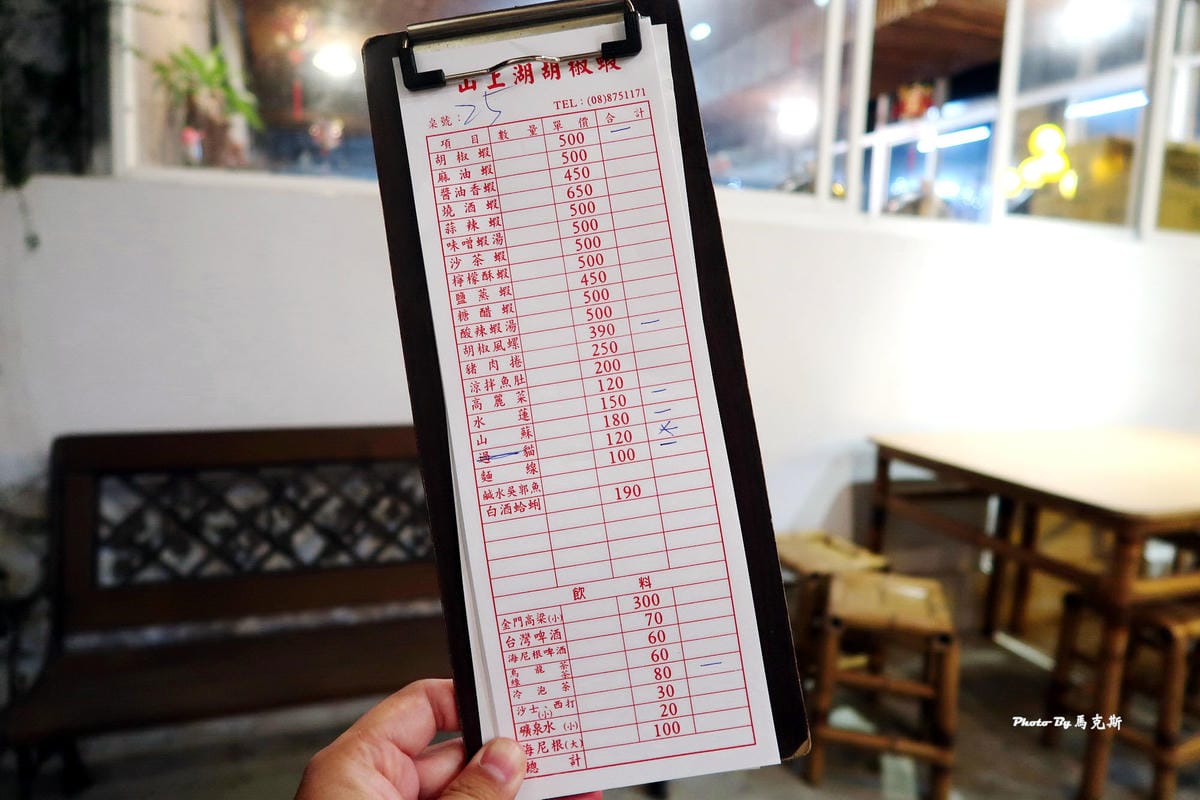 山上湖胡椒蝦
桌號：25 TEL：(08)8751171
項目 數量 單價 合計
胡椒蝦 500 —
麻油蝦 500
醬油香蝦 450
燒酒蝦 650
蒜辣蝦 500
味噌蝦湯 500
沙茶蝦 500
檸檬酥蝦 500
鹽蒸蝦 450
糖醋蝦 500
酸辣蝦湯 500
胡椒風螺 390 —
豬肉捲 250
涼拌魚肚 200
高麗菜 120
水蓮 150 —
山蘇 180 —
過貓 120
麵線 100 —
鹹水吳郭魚
白酒蛤蜊 190
飲料
金門高粱(小) 300
台灣啤酒 70
海尼根啤酒 60
烏龍茶 綠茶 60
冷泡茶 80 —
沙士、西打(小) 30
礦泉水(小) 20
海尼根(大) 100
總計
Photo By 馬克斯